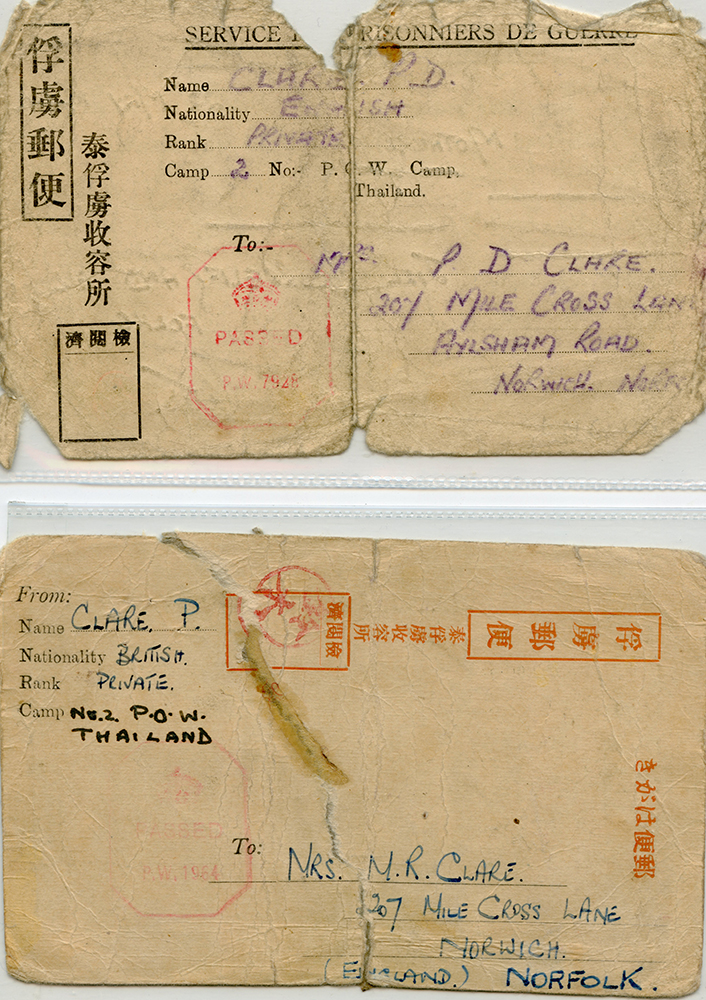 SERVICE PRISONNIERS DE GUERRE
俘虜郵便
泰俘虜收容所
檢閱濟
Name CLARE. P.D.
Nationality ENGLISH
Rank PRIVATE
Camp 2 No:- P. O. W. Camp,
Thailand.
To:-
PASSED
P.W. 7928
P D CLARE.
207 MILE CROSS LANE
AYLSHAM ROAD.
NORWICH.
From:
Name CLARE. P.
Nationality BRITISH.
Rank PRIVATE.
Camp No. 2. P.O.W.
THAILAND
檢閱濟
泰俘虜收容所
俘虜郵便
きがは便郵
PASSED
P.W. 1964
To:
MRS. M.R. CLARE.
207 MILE CROSS LANE
NORWICH.
(ENGLAND.) NORFOLK.